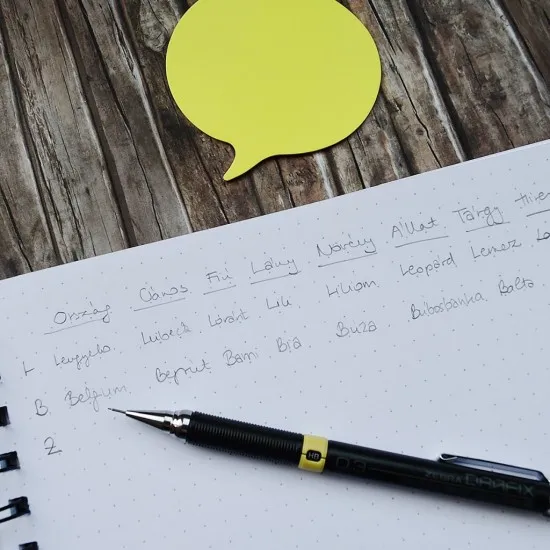 Ország Város Fiú Lány Növény Állat Tárgy Híre
L Lübeck Lóránt Lili Liliom Leopárd Lemez
B Belgium Bejrut Bari Bia Búza Búbosbanka Balta
Z
HB
ZEBRA DRAFIX